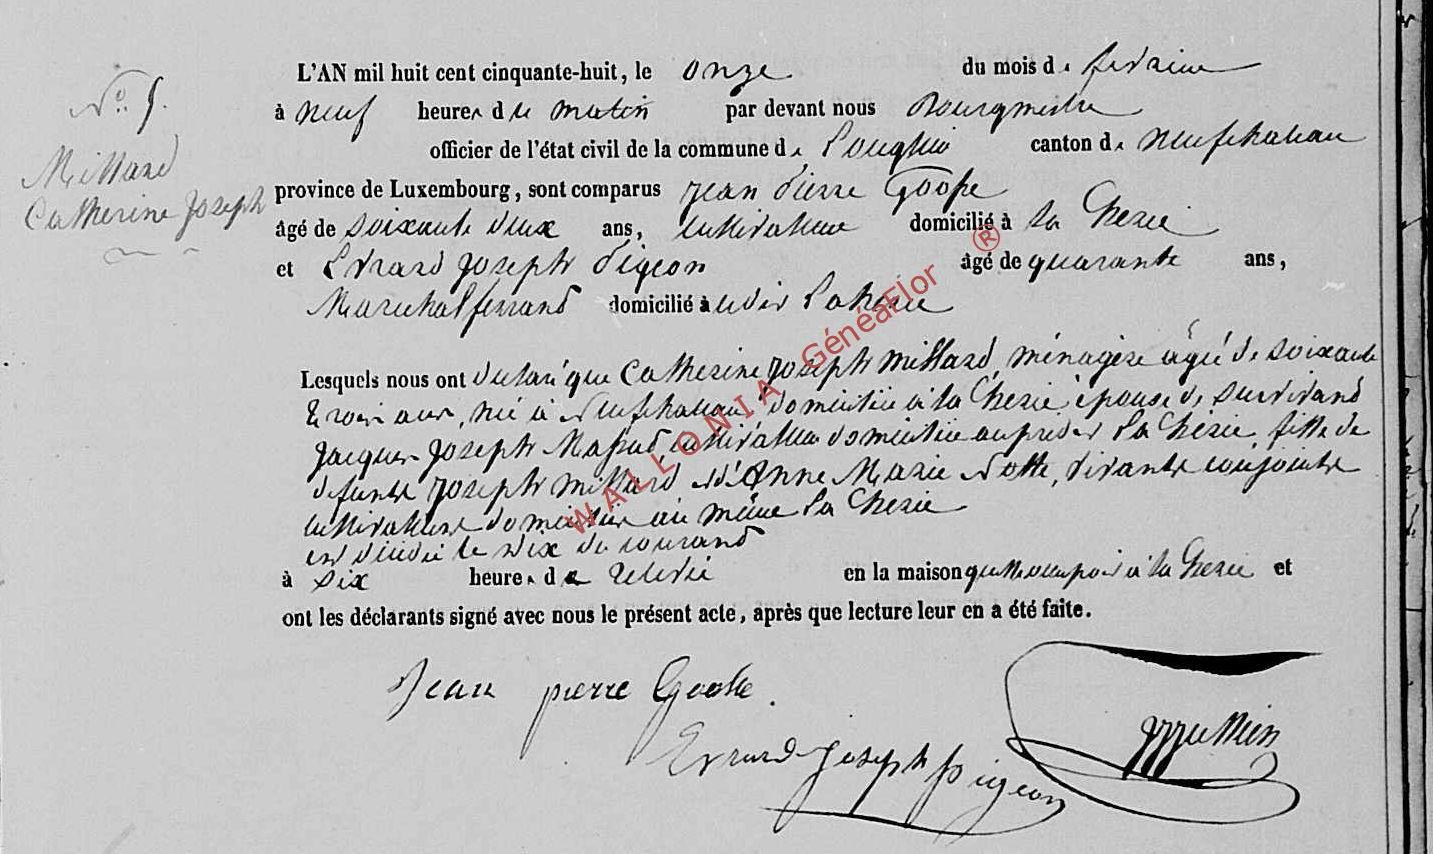 N° 5.
Millard
Catherine Joseph
L'AN mil huit cent cinquante-huit, le onze du mois de fevrier
à neuf heures du matin par devant nous Bourgmestre
officier de l'état civil de la commune de Longlier canton de neufchateau
province de Luxembourg, sont comparus jean pierre Gooße
âgé de soixante deux ans, cultivateur domicilié à La Cherie
et Evrard joseph Pigeon âgé de quarante ans,
Marechal ferrand domicilié à La herie
Lesquels nous ont déclaré que Catherine Joseph Millard, ménagère agée de soixante
trois ans, née à Neufchateau domiciliée à la Cherie épouse de survivand
jacques joseph cultivateur domicilié La Cherie, fille de
defunts joseph millard et d'Anne Marie Notte, vivants conjoints
cultivateurs domiciliés au même La Cherie
est décédée le dix du courand
à six heures de relevée en la maison quelle occupoit à la Cherie et
ont les déclarants signé avec nous le présent acte, après que lecture leur en a été faite.
Jean pierre Gooße.
Evrard joseph pigeon
WALLONIA GénéaFlor ®